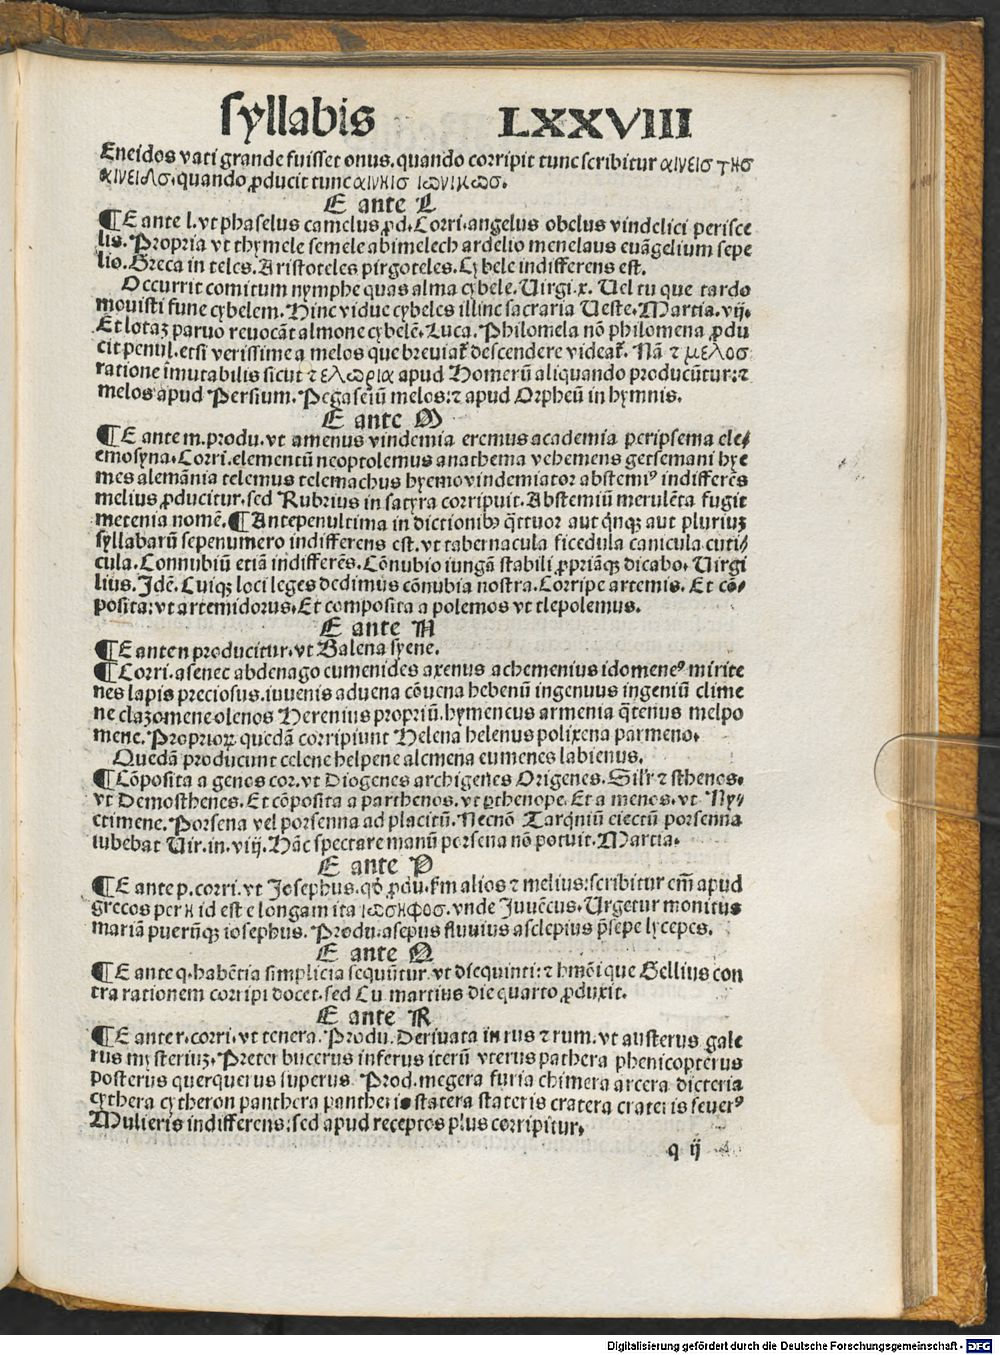 syllabis LXXVIII
Eneidos vati grande fuisset onus. quando corripit tunc scribitur αινεισ τησ
αινειδοσ. quando ꝓducit tunc αινηισ ιωνικωσ.
E ante L
¶E ante l. vt phaselus camelus ꝓd. Corri. angelus obelus vindelici perisce
lis. Propria vt thymele semele abimelech ardelio menelaus euāgelium sepe
lio. Greca in teles. Aristoteles pirgoteles. Cybele indifferens est.
Occurrit comitum nymphe quas alma cybele. Uirgi. x. Uel tu que tardo
mouisti fune cybelem. Hinc vidue cybeles illinc sacraria Ueste. Martia. vij.
Et lotaꝫ paruo reuocāt almone cybelē. Luca. Philomela nō philomena ꝓdu
cit penul. etsi verissime a melos que breuiat̃ descendere videat̃. Nā ⁊ μελοσ
ratione īmutabilis sicut ⁊ ελωρια apud Homerū aliquando producūtur: ⁊
melos apud Persium. Pegaseiū melos: ⁊ apud Orpheū in hymnis.
E ante M
¶E ante m. produ. vt amenus vindemia eremus academia peripsema ele/
emosyna. Corri. elementū neoptolemus anathema vehemens getsemani hye
mes alemānia telemus telemachus hyemo vindemiator abstemiꝰ indifferēs
melius ꝓducitur. sed Rubrius in satyra corripuit. Abstemiū merulēta fugit
metenia nomē. ¶Antepenultima in dictionibꝫ q̄ttuor aut q̄nqꝫ aut pluriuꝫ
syllabarū sepenumero indifferens est. vt tabernacula ficedula canicula cuti/
cula. Connubiū etiā indifferēs. Cōnubio iungā stabili ꝓpriāqꝫ dicabo. Uirgi
lius. Idē. Cuiqꝫ loci leges dedimus cōnubia nostra. Corripe artemis. Et cō/
posita: vt artemidorus. Et composita a polemos vt tlepolemus.
E ante N
¶E ante n producitur. vt Balena syene.
¶Corri. asenec abdenago eumenides axenus achemenius idomeneꝰ mirite
nes lapis preciosus. iuuenis aduena cōuena hebenū ingenuus ingeniū clime
ne clazomene olenos Herenius propriū. hymeneus armenia q̄tenus melpo
mene. Proprioꝝ quedā corripiunt Helena helenus polixena parmeno.
Quedā producunt celene helpene alcmena eumenes labienus.
¶Cōposita a genos cor. vt Diogenes archigenes Origenes. Sil'r ⁊ sthenos.
vt Demosthenes. Et cōposita a parthenos. vt ꝑthenope. Et a menos. vt Ny/
ctimene. Porsena vel porsenna ad placitū. Necnō Tarq̄niū eiectū porsenna
iubebat Uir. in. viij. Hāc spectare manū porsena nō potuit. Martia.
E ante P
¶E ante p. corri. vt Josephus. qď ꝓdu. ẜm alios ⁊ melius: scribitur em̄ apud
grecos per η id est e longam ita ιωσηφοσ. vnde Juuēcus. Urgetur monitus
mariā puerūqꝫ iosephus. Produ. asepus fluuius asclepius p̄sepe lycepes.
E ante Q
¶E ante q. habētia simplicia sequūtur. vt diequinti: ⁊ hmōi que Gellius con
tra rationem corripi docet. sed Cn martius die quarto ꝓduxit.
E ante R
¶E ante r. corri. vt tenera. Produ. Deriuata in rus ⁊ rum. vt austerus gale
rus mysteriuꝫ. Preter bucerus inferus iterū vterus pathera phenicopterus
posterus querquerus superus. Prod. megera furia chimera arcera dicteria
cythera cytheron panthera pantheris statera stateris cratera crateris seuerꝰ
Mulieris indifferens: sed apud receptos plus corripitur.
q ij
Digitalisierung gefördert durch die Deutsche Forschungsgemeinschaft - DFG